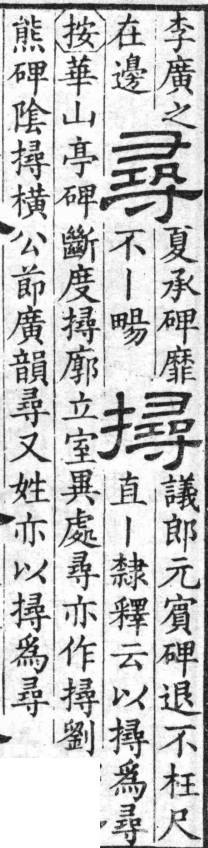 李廣之
在邊
尋
夏承碑靡
不丨畼
撏
議郎元賓碑退不枉尺
直丨隸釋云以撏爲尋
按華山亭碑斷度撏廓立室異處尋亦作撏劉
熊碑陰撏橫公節廣韻尋又姓亦以撏爲尋